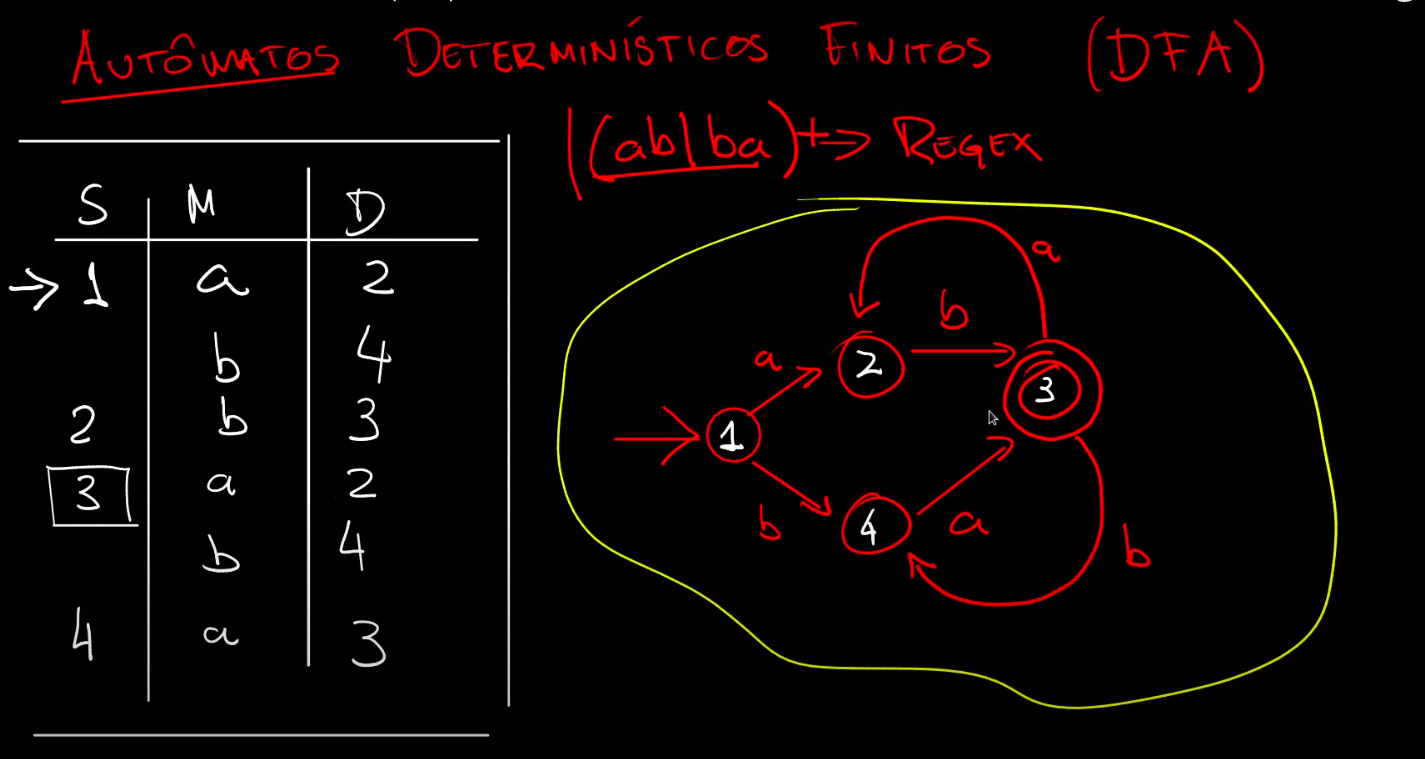 AUTÔMATOS DETERMINÍSTICOS FINITOS (DFA)
|(ab|ba)+ => REGEX
S M D
→ 1 a 2
b 4
2 b 3
3 a 2
b 4
4 a 3
a
b
a 2 3
1
4
b a b